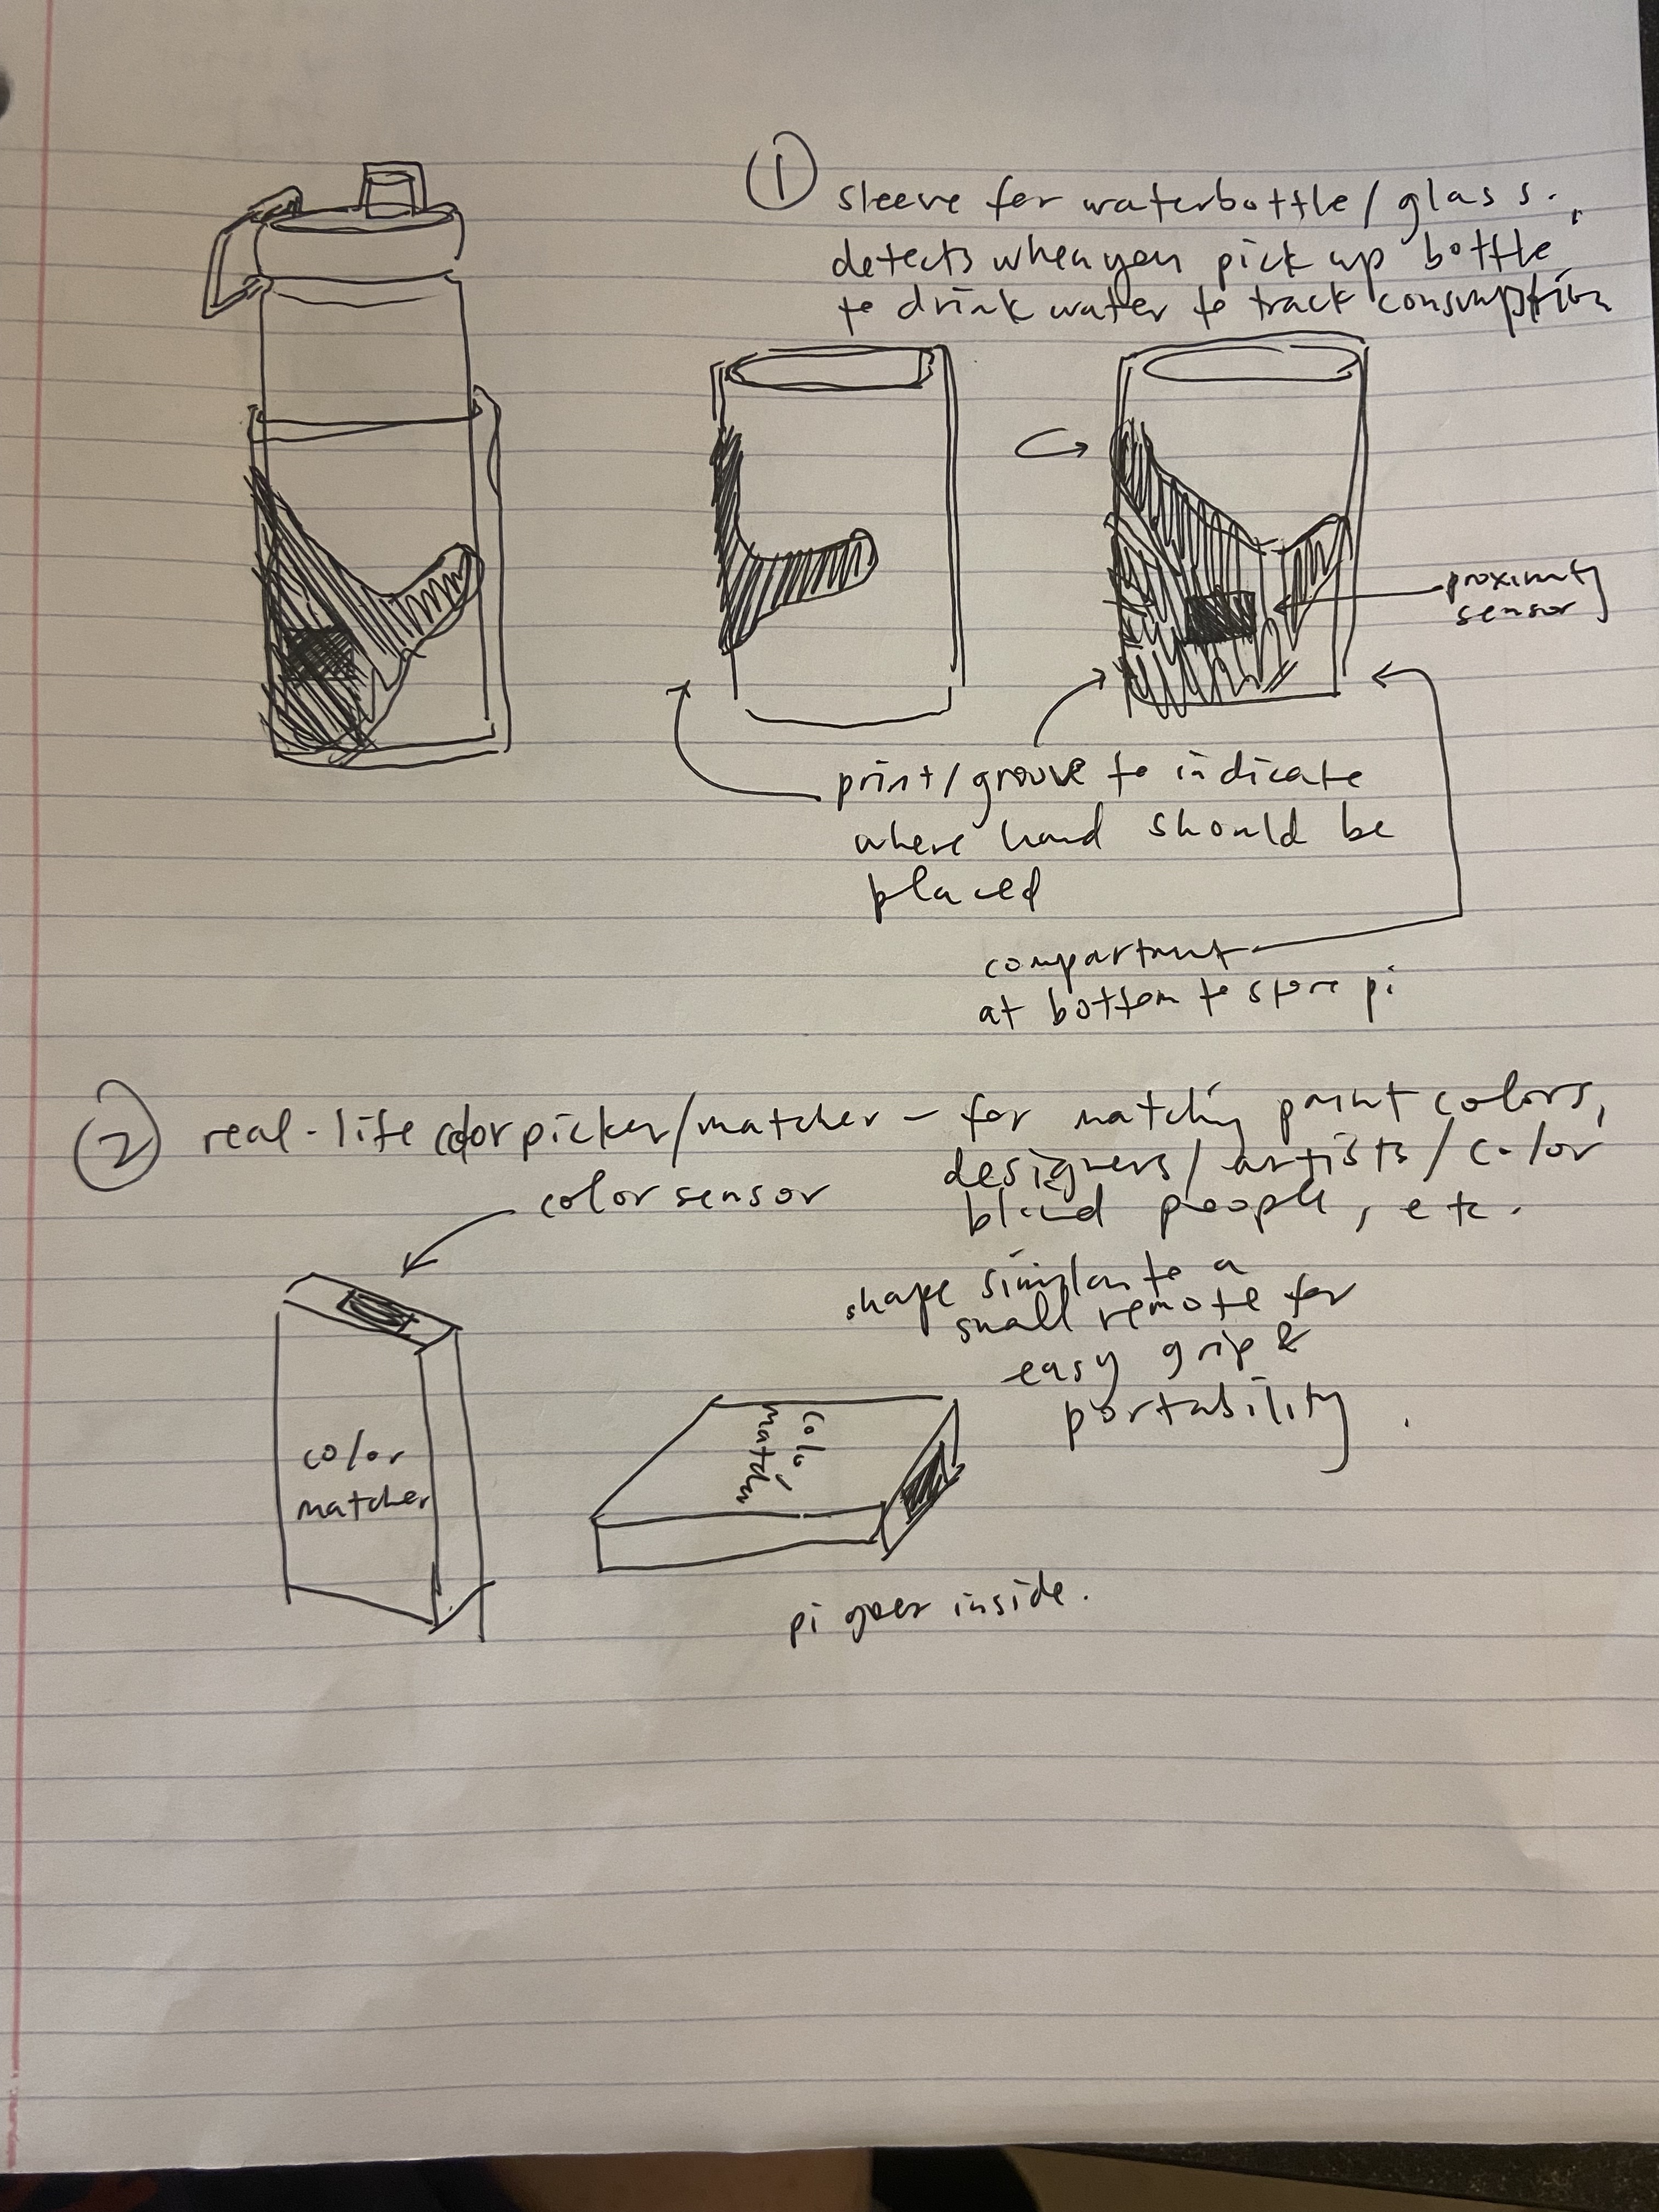 1
sleeve for waterbottle/glass.
detects when you pick up bottle
to drink water to track consumption
proximity
sensor
print/groove to indicate
where hand should be
placed
compartment
at bottom to store pi
2
real-life color picker/matcher – for matching paint colors,
designers/artists/color
blind people, etc.
color sensor
shape similar to a
small remote for
easy grip &
portability.
color
matcher
color
matcher
pi goes inside.